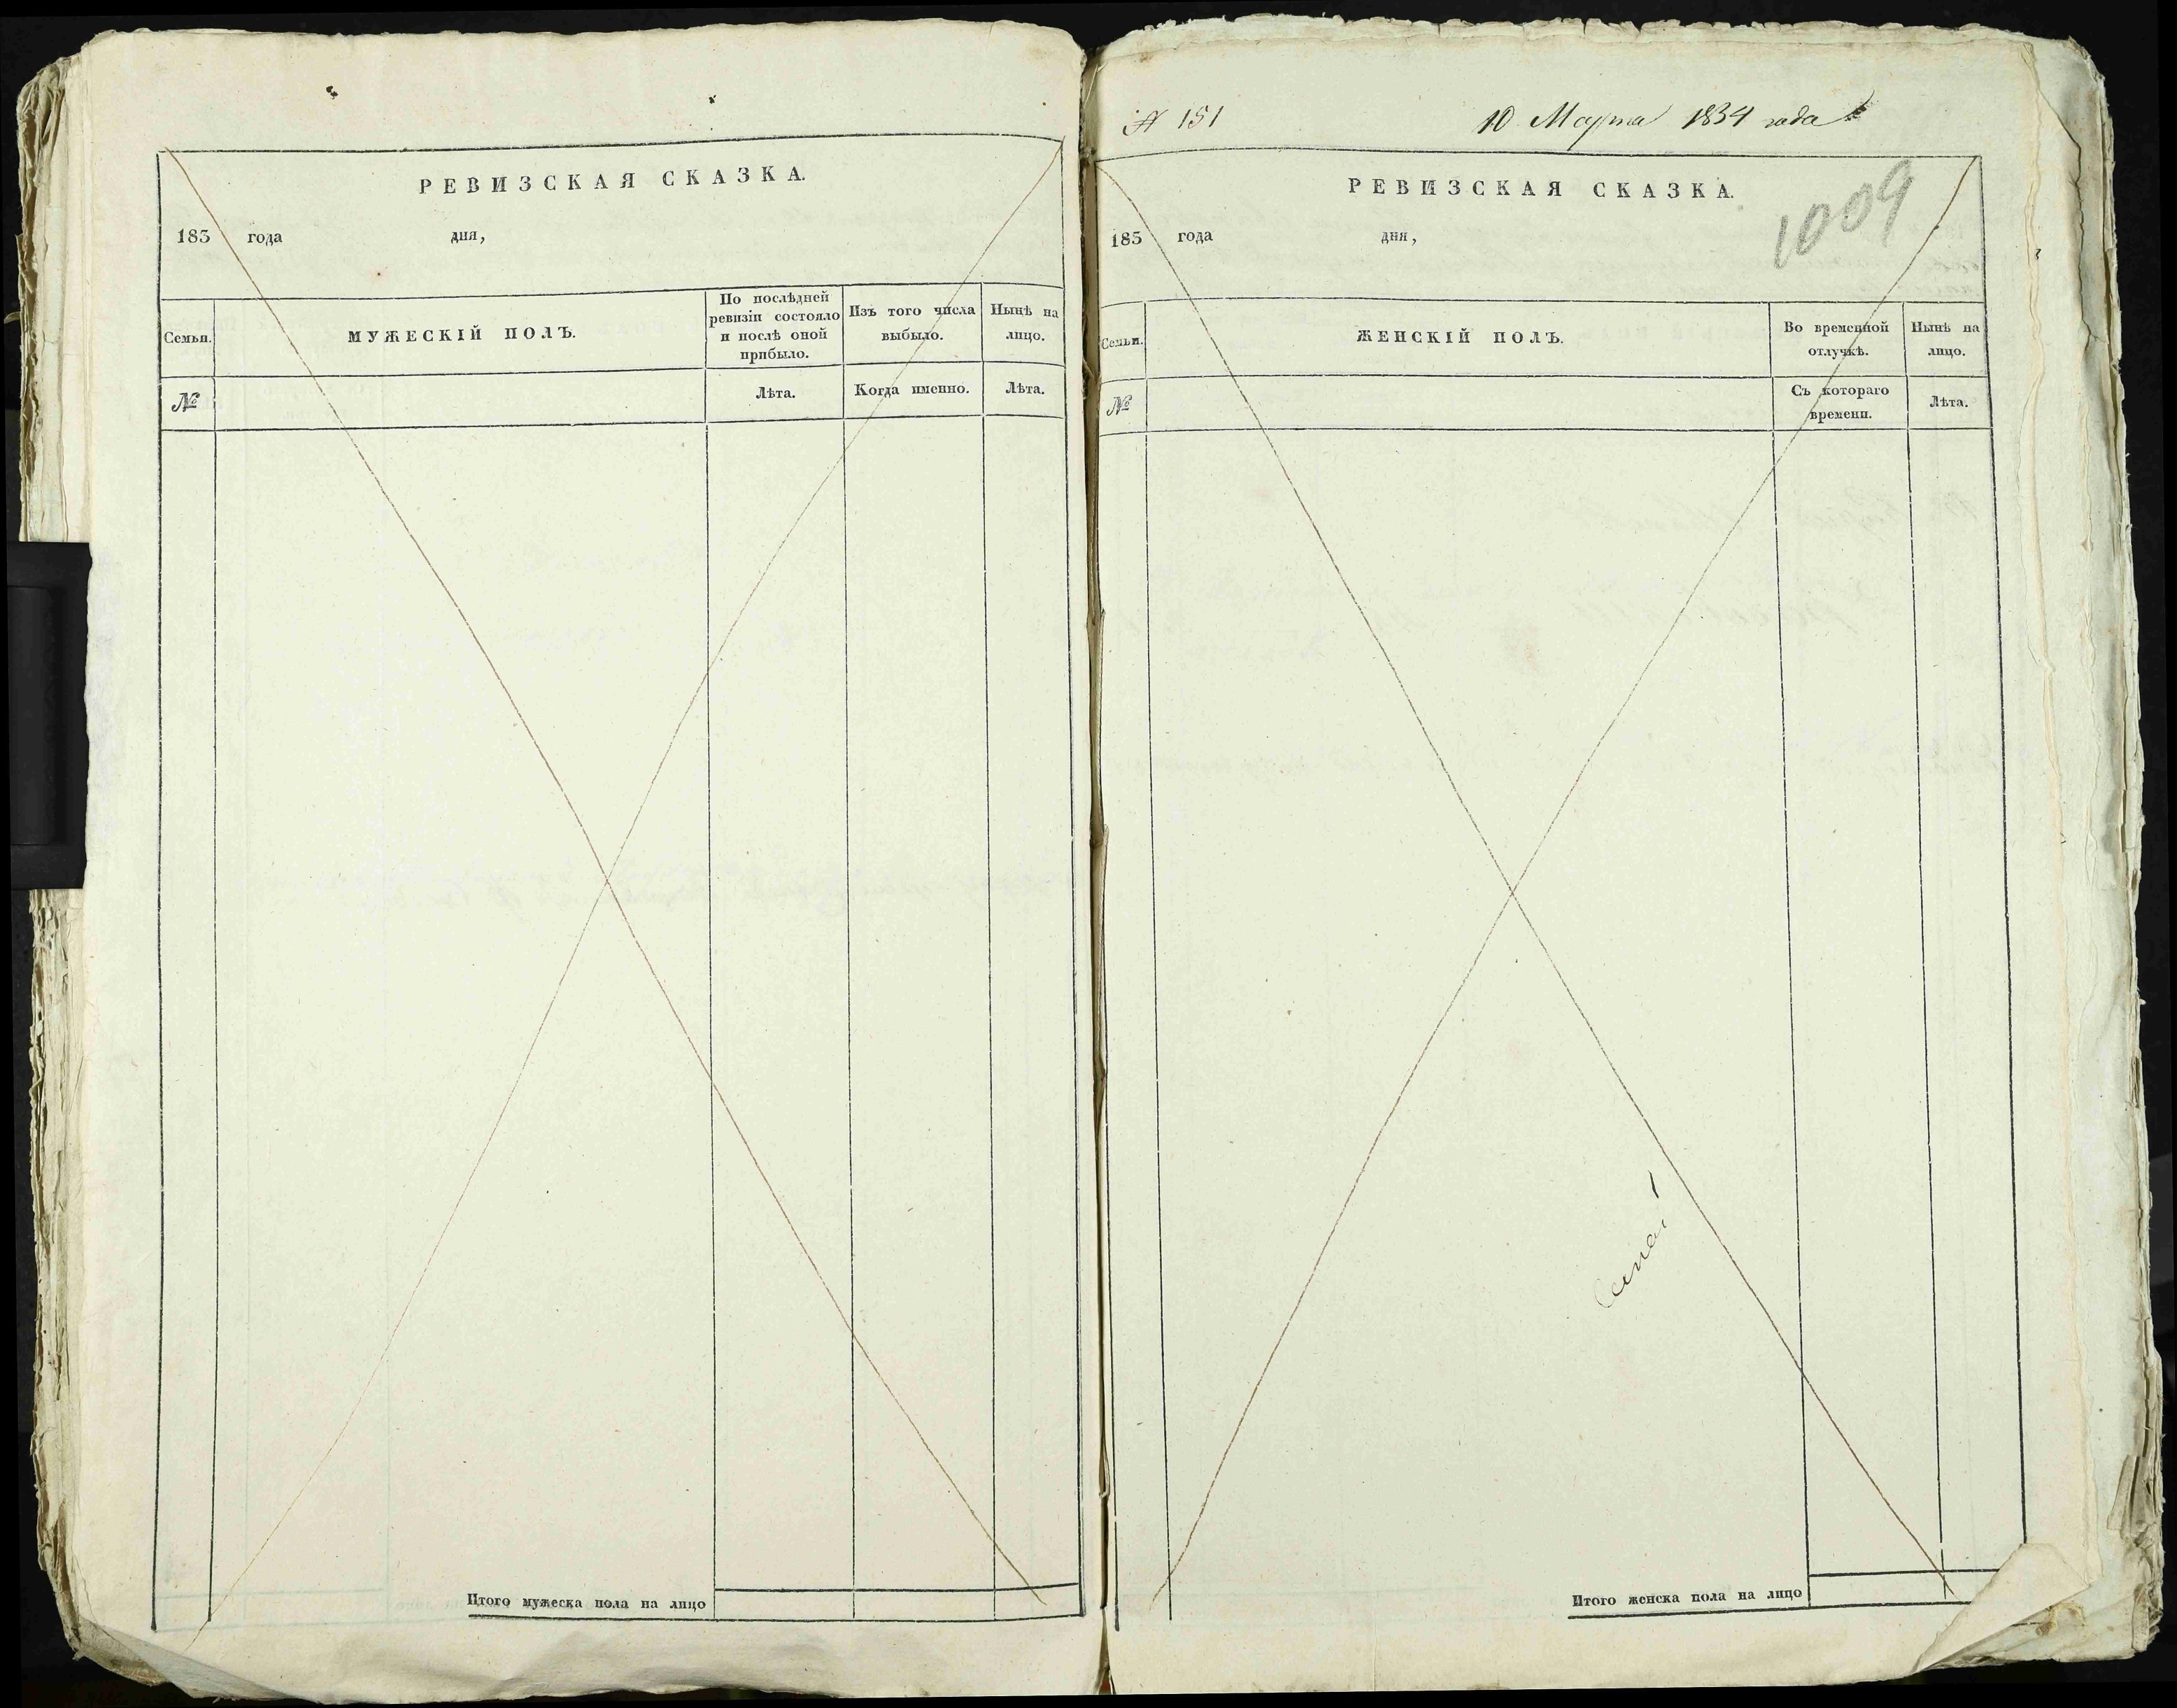 РЕВИЗСКАЯ СКАЗКА.
183 года дня,
Семьи.
МУЖЕСКІЙ ПОЛЪ.
По послѣдней ревизіи состояло и послѣ оной прибыло.
Изъ того числа выбыло.
Нынѣ на лицо.
№
Лѣта.
Когда именно.
Лѣта.
Итого мужеска пола на лицо
№ 151
10 Марта 1834 года
РЕВИЗСКАЯ СКАЗКА.
1009
183 года дня,
Семьи.
ЖЕНСКІЙ ПОЛЪ.
Во временной отлучкѣ.
Нынѣ на лицо.
№
Съ котораго времени.
Лѣта.
Итого женска пола на лицо